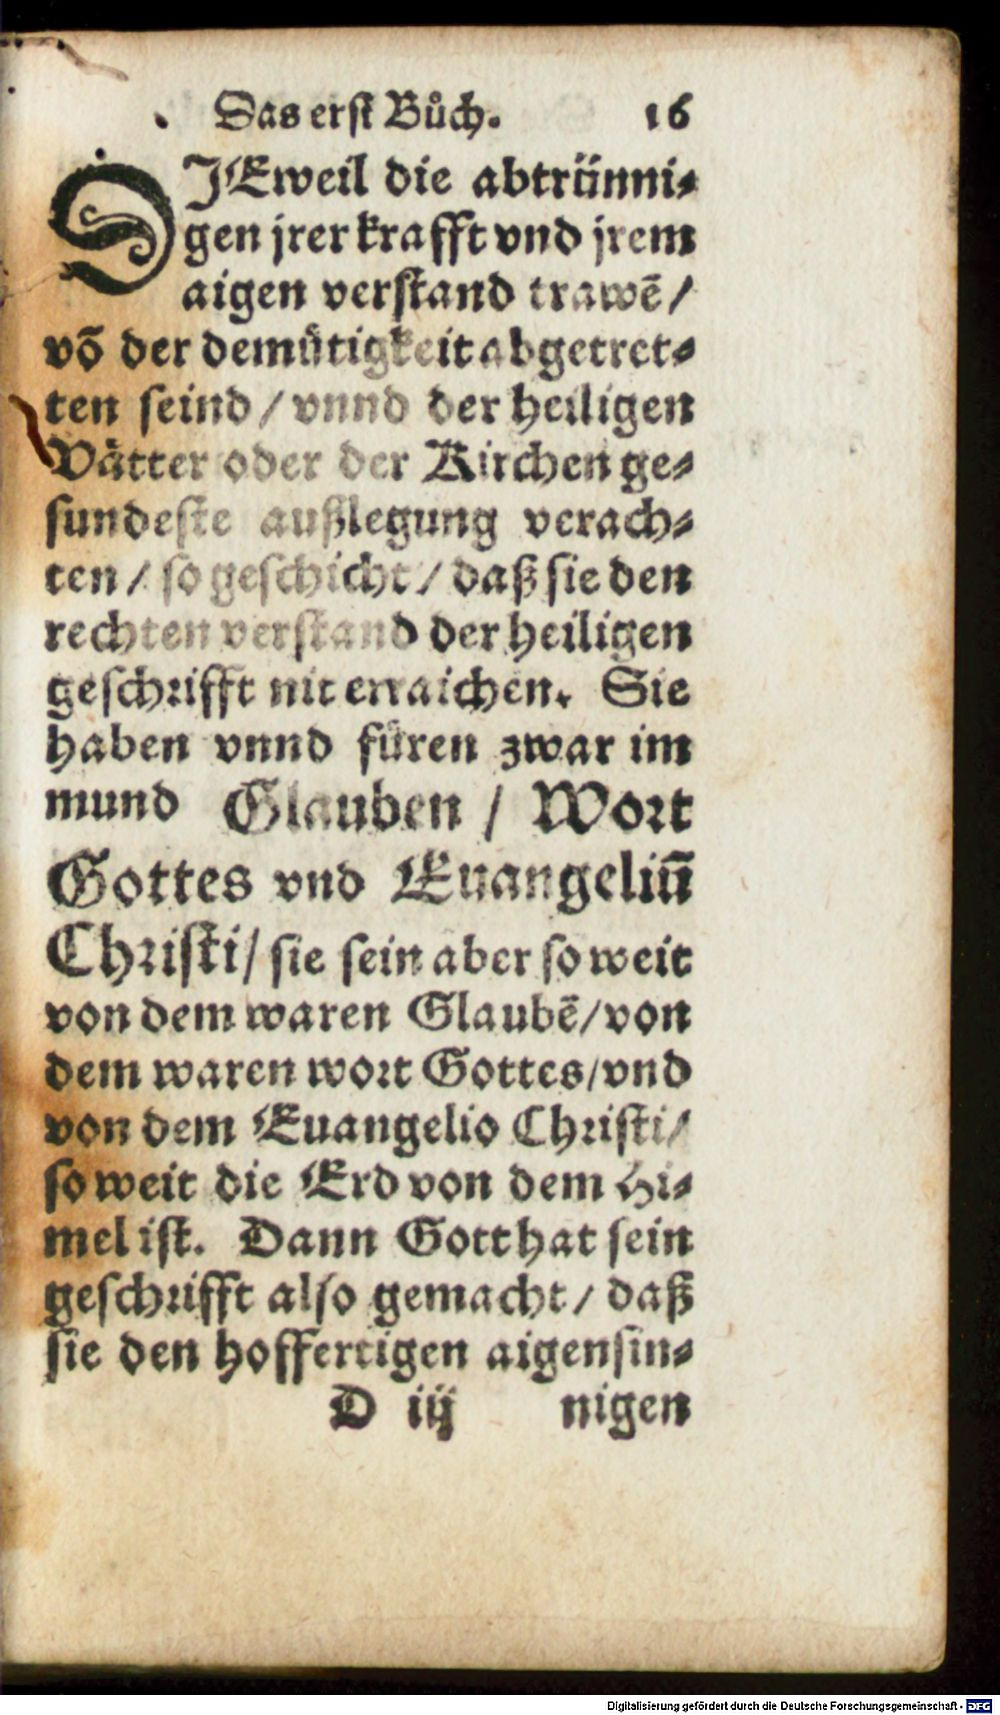 Das erst Bůch. 16
DJEweil die abtrünni⸗
gen jrer krafft vnd jrem
aigen verstand trawē/
võ der demütigkeit abgetret⸗
ten seind/ vnnd der heiligen
Vätter oder der Kirchen ge⸗
sundeste außlegung verach⸗
ten/ so geschicht/ daß sie den
rechten verstand der heiligen
geschrifft nit erraichen. Sie
haben vnnd füren zwar im
mund Glauben/ Wort
Gottes vnd Euangeliū
Christi/ sie sein aber so weit
von dem waren Glaubē/ von
dem waren wort Gottes/ vnd
von dem Euangelio Christi/
so weit die Erd von dem Hi⸗
mel ist. Dann Gott hat sein
geschrifft also gemacht/ daß
sie den hoffertigen aigensin⸗
D iij nigen
Digitalisierung gefördert durch die Deutsche Forschungsgemeinschaft - DFG